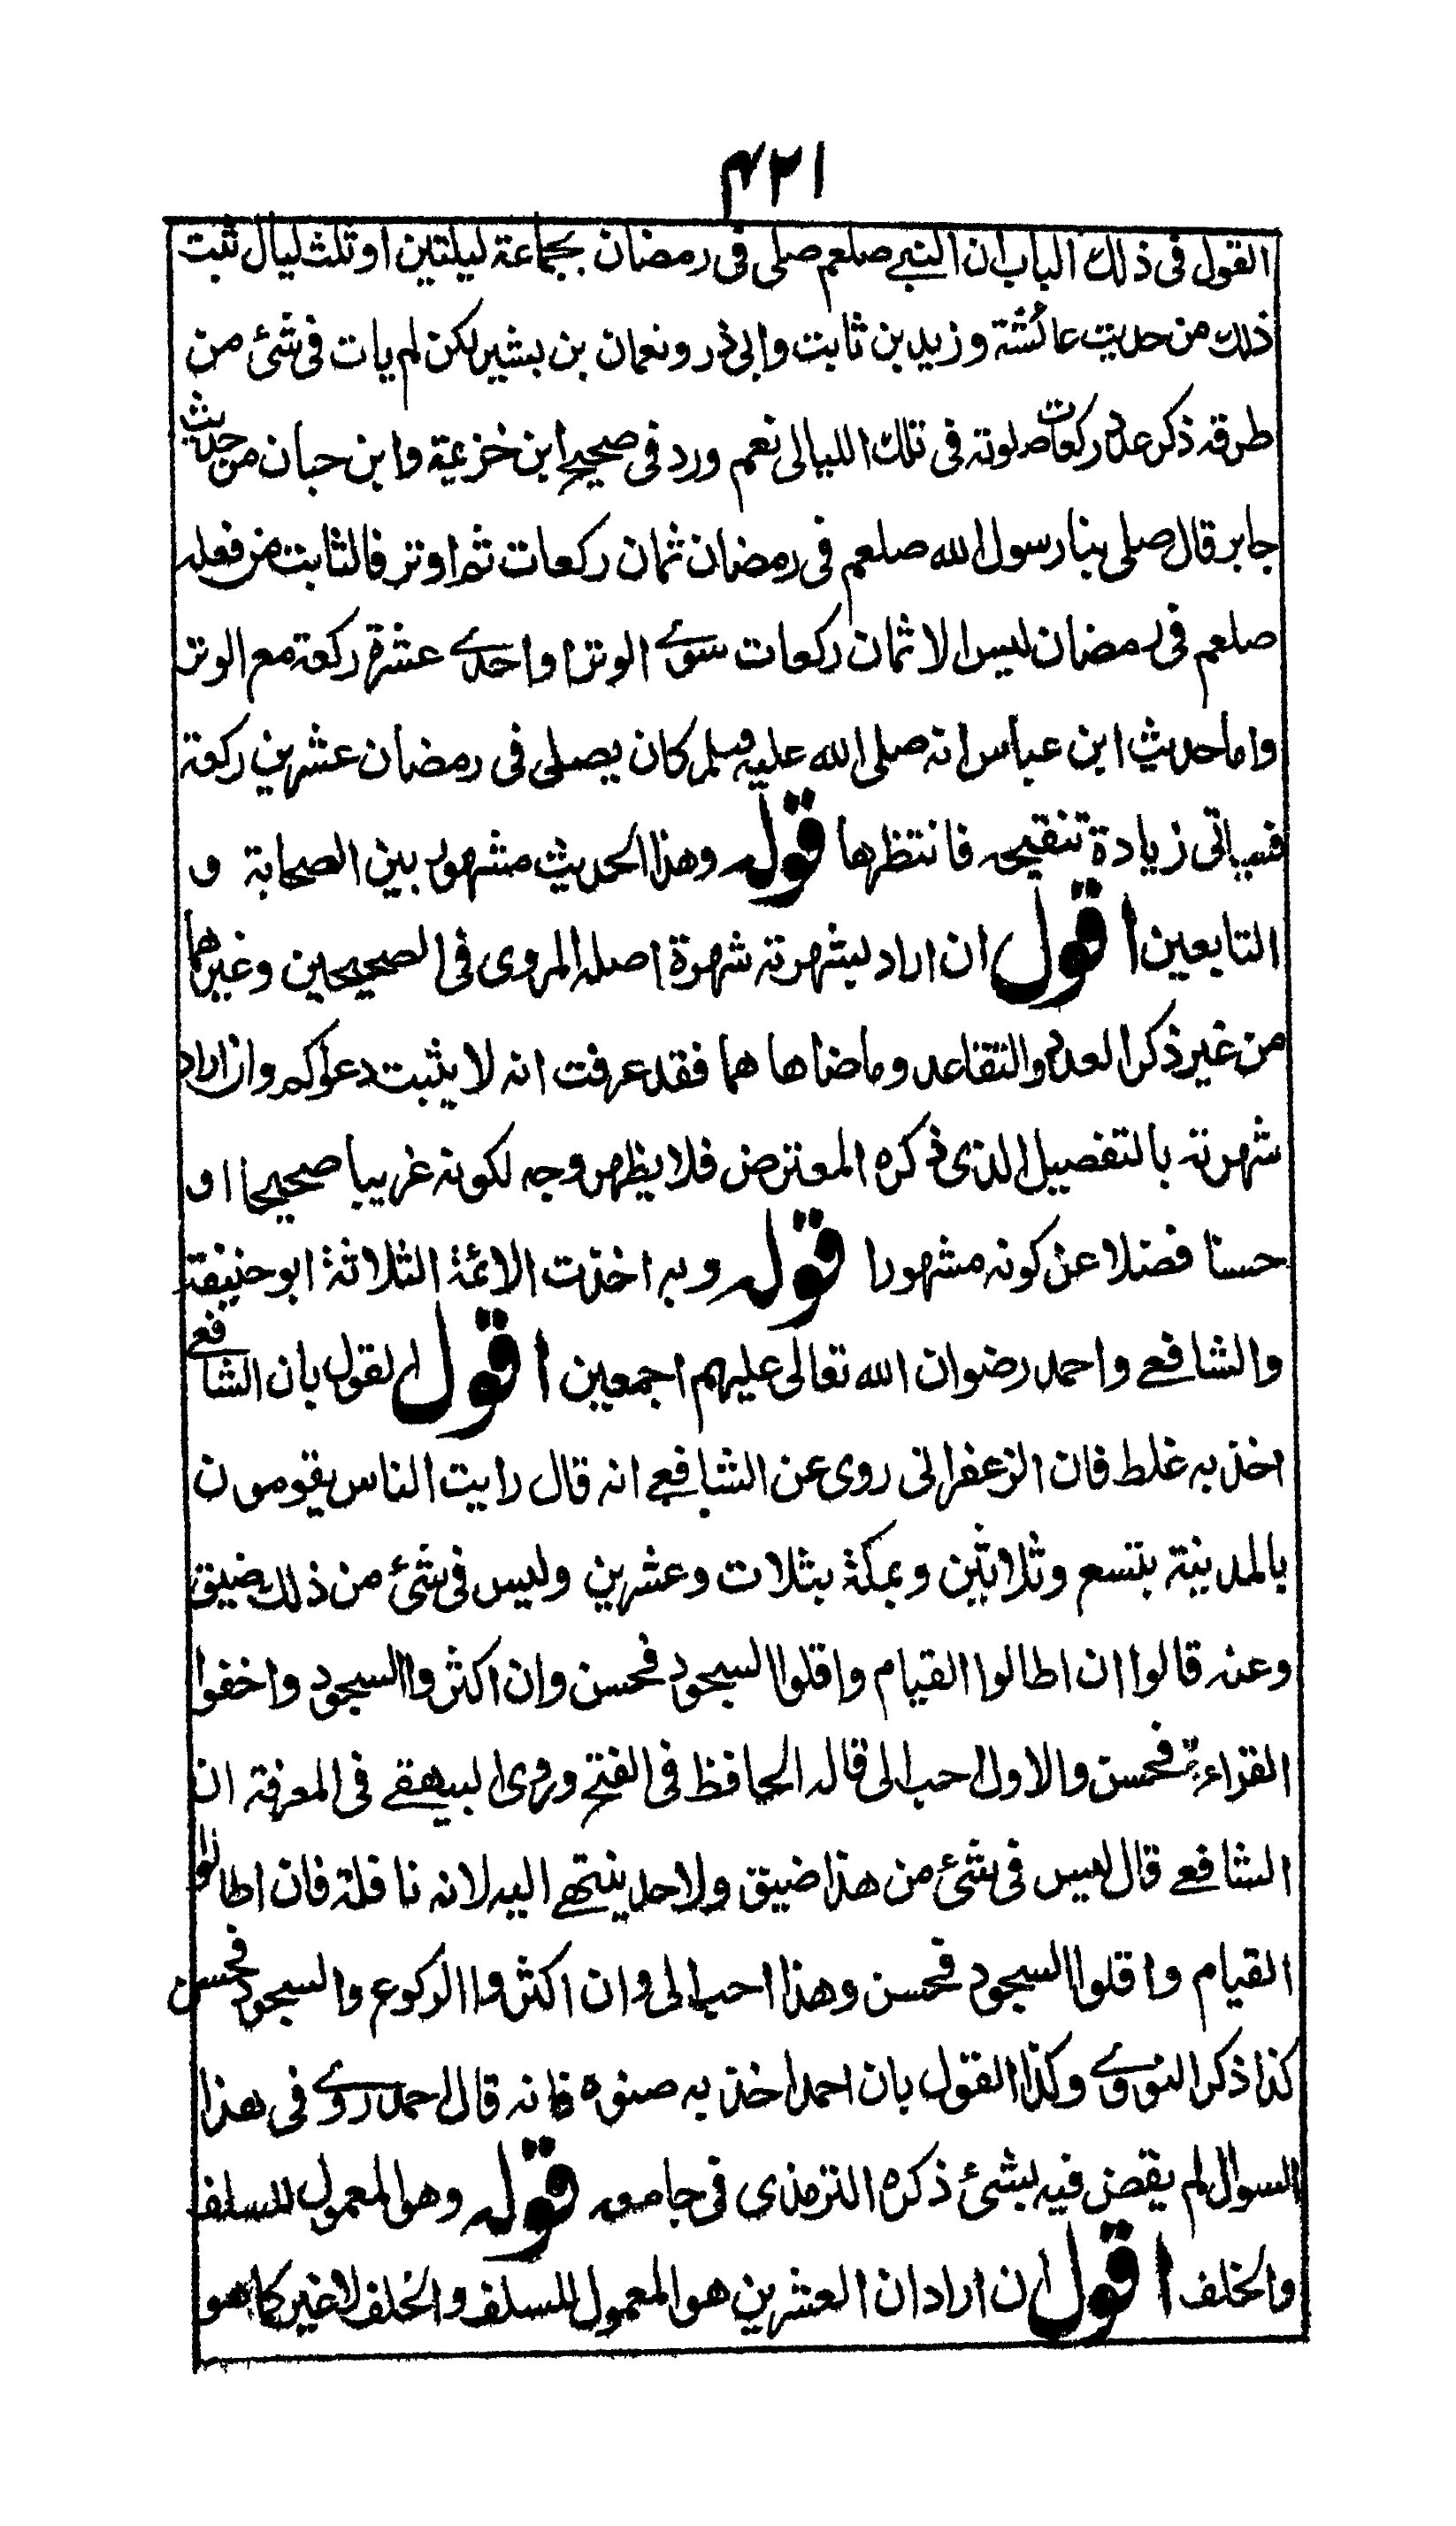 ۴۲۱
القول فى ذلك الباب ان النبے صلعم صلى فى رمضان بجماعة ليلتين او ثلث ليال ثبت
ذلك من حديث عائشة وزيد بن ثابت وابى ذر ونعمان بن بشير لكن لم يات فى شئ من
طرقه ذكر عدد ركعات صلوته فى تلك الليالى نعم ورد فى صحيح ابن خزيمة وابن حبان من حديث
جابر قال صلى بنا رسول الله صلعم فى رمضان ثمان ركعات ثم اوتر فالثابت من فعله
صلعم فى رمضان ليس الا ثمان ركعات سوے الوتر او احدے عشرة ركعة مع الوتر
واما حديث ابن عباس انه صلى الله عليه وسلم كان يصلى فى رمضان عشرين ركعة
فسياتى زيادة تنقيحه فانتظرها قوله وهذا الحديث مشهور بين الصحابة و
التابعين اقول ان اراد بشهرته شهرة اصله المروى فى الصحيحين وغيرهما
من غير ذكر العدد والتقاعد وماضاها هما فقد عرفت انه لا يثبت دعواكم وان اراد
شهرته بالتفصيل الذى ذكره المعترض فلا يظهر وجه لكونه غريبا صحيحا او
حسنا فضلا عن كونه مشهورا قوله وبه اخذت الائمة الثلاثة ابو حنيفة
والشافعے واحمد رضوان الله تعالى عليهم اجمعين اقول القول بان الشافعے
اخذ به غلط فان الزعفرانى روى عن الشافعے انه قال رايت الناس يقومون
بالمدينة بتسع وثلاثين وبمكة بثلاث وعشرين وليس فى شئ من ذلك ضيق
وعنه قالوا ان اطالوا القيام واقلوا السجود فحسن وان اكثروا السجود واخفوا
القراءة فحسن والاول احب الى قاله الحافظ فى الفتح وروى البيهقے فى المعرفة ان
الشافعے قال ليس فى شئ من هذا ضيق ولا حد ينتهے اليه لانه نافلة فان اطالوا
القيام واقلوا السجود فحسن وهذا احب الى وان اكثروا الركوع والسجود فحسن
كذا ذكر النووے وكذا القول بان احمد اخذ به صنوه فانه قال احمد روے فى هذا
السوال لم يقض فيه بشئ ذكره الترمذى فى جامعه قوله وهو المعمول للسلف
والخلف اقول ان اراد ان العشرين هو المعمول للسلف والخلف لا غير كما هو